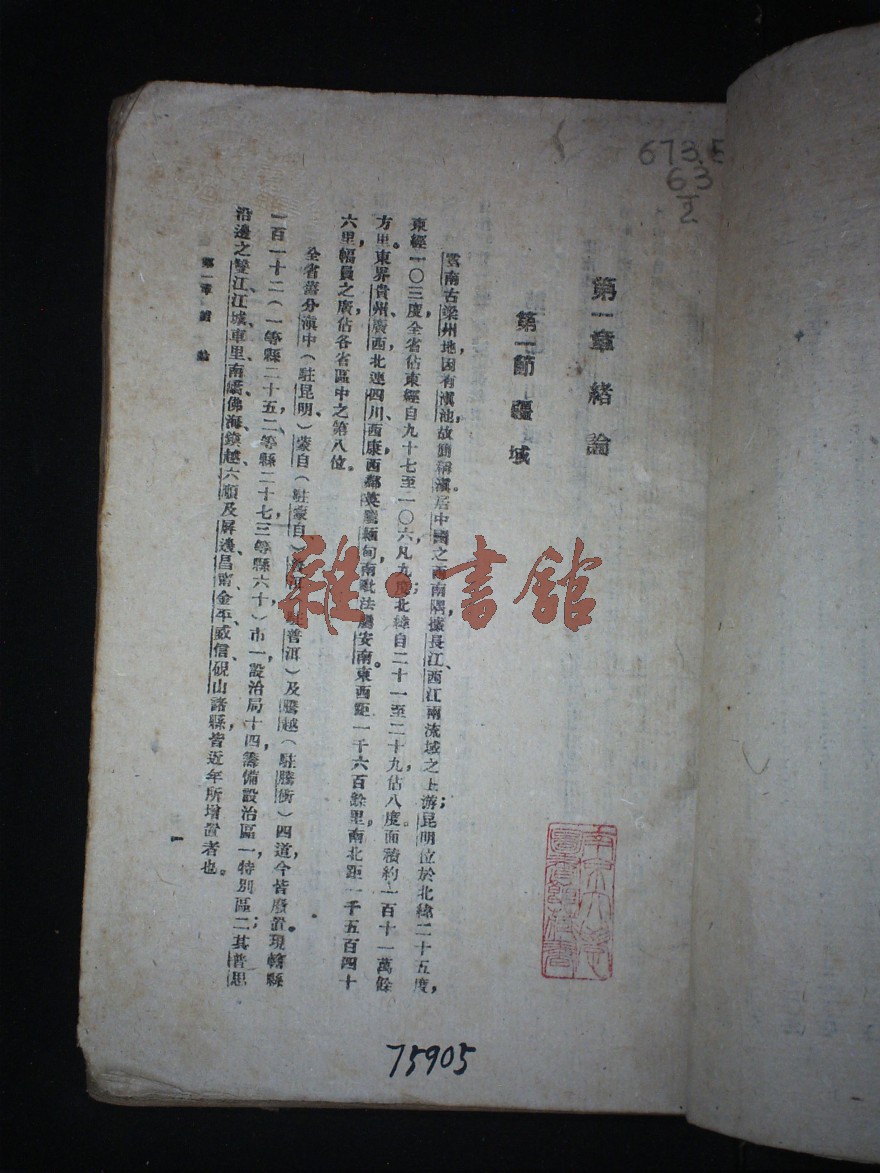 673.5
63
2
第一章 緒論
第一節 疆域
雲南古梁州地因有滇池，故簡稱滇。居中國之西南隅，據長江、西江兩流域之上游；昆明位於北緯二十五度，
東經一〇三度，全省佔東經自九十七至一〇六，凡九度；北緯自二十一至二十九，佔八度。面積約一百十一萬餘
方里。東界貴州、廣西，北連四川、西康，西鄰英屬緬甸，南毗法屬安南。東西距一千六百餘里，南北距一千五百四十
六里，幅員之廣，佔各省區中之第八位。
全省舊分滇中（駐昆明）、蒙自（駐蒙自）、普洱（駐普洱）及騰越（駐騰衝）四道，今皆廢置。現轄縣
一百一十二（一等縣二十五，二等縣二十七，三等縣六十）市一，設治局十四，籌備設治區一，特別區二；其普思
沿邊之雙江、江城、車里、南嶠、佛海、鎮越六順及屏邊、昌甯、金平、威信、硯山諸縣，皆近年所增置者也。
第一章 緒論
一
南京大學
圖書館藏書
75905
雜·書館